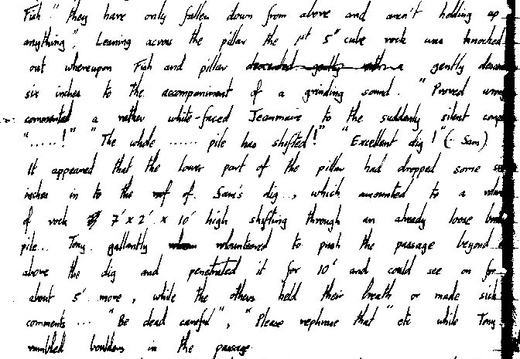 Fish " they have only fallen down from above and aren't holding up
anything " Leaning across the pillar the 1st 5" cube rock was knocked
out whereupon Fish and pillar gently
six inches to the accompaniment of a grinding sound. " Proved
commented a rather white-faced Jeanmaire to the suddenly silent
" .....! " " The whole ...... pile has shifted! " " Excellent dig ! " (- Sam)
It appeared that the lower part of the pillar had dropped some
inches in to the roof of. Sam's dig.., which amounted to a
of rock 7' x 2' x 10' high shifting through an already loose
pile... Tony gallantly volunteered to push the passage beyond
above the dig and penetrated it for 10' and could see on for
about 5' more, while the others held their breath or made
comments ... " Be dead careful ", " Please rephrase that " etc while Tony
rumbled boulders in the passage